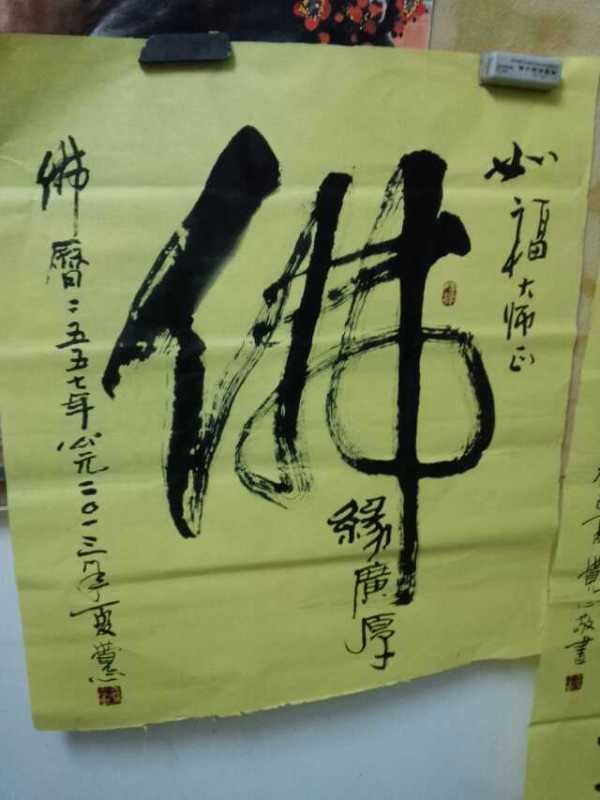 如福大师正
佛
緣廣厚
佛曆二五五七年公元二〇一三年夏
敬書